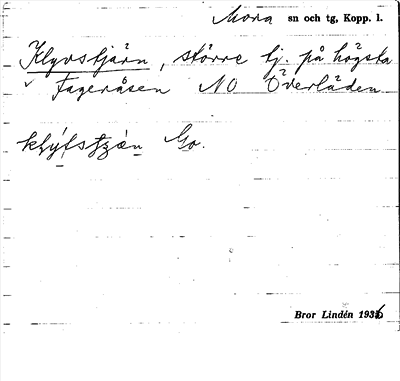 Mora sn och tg, Kopp. l.
Klyvstjärn, större tj. på högsta
Fageråsen NO Överläden.
Go.
Bror Lindén 1936